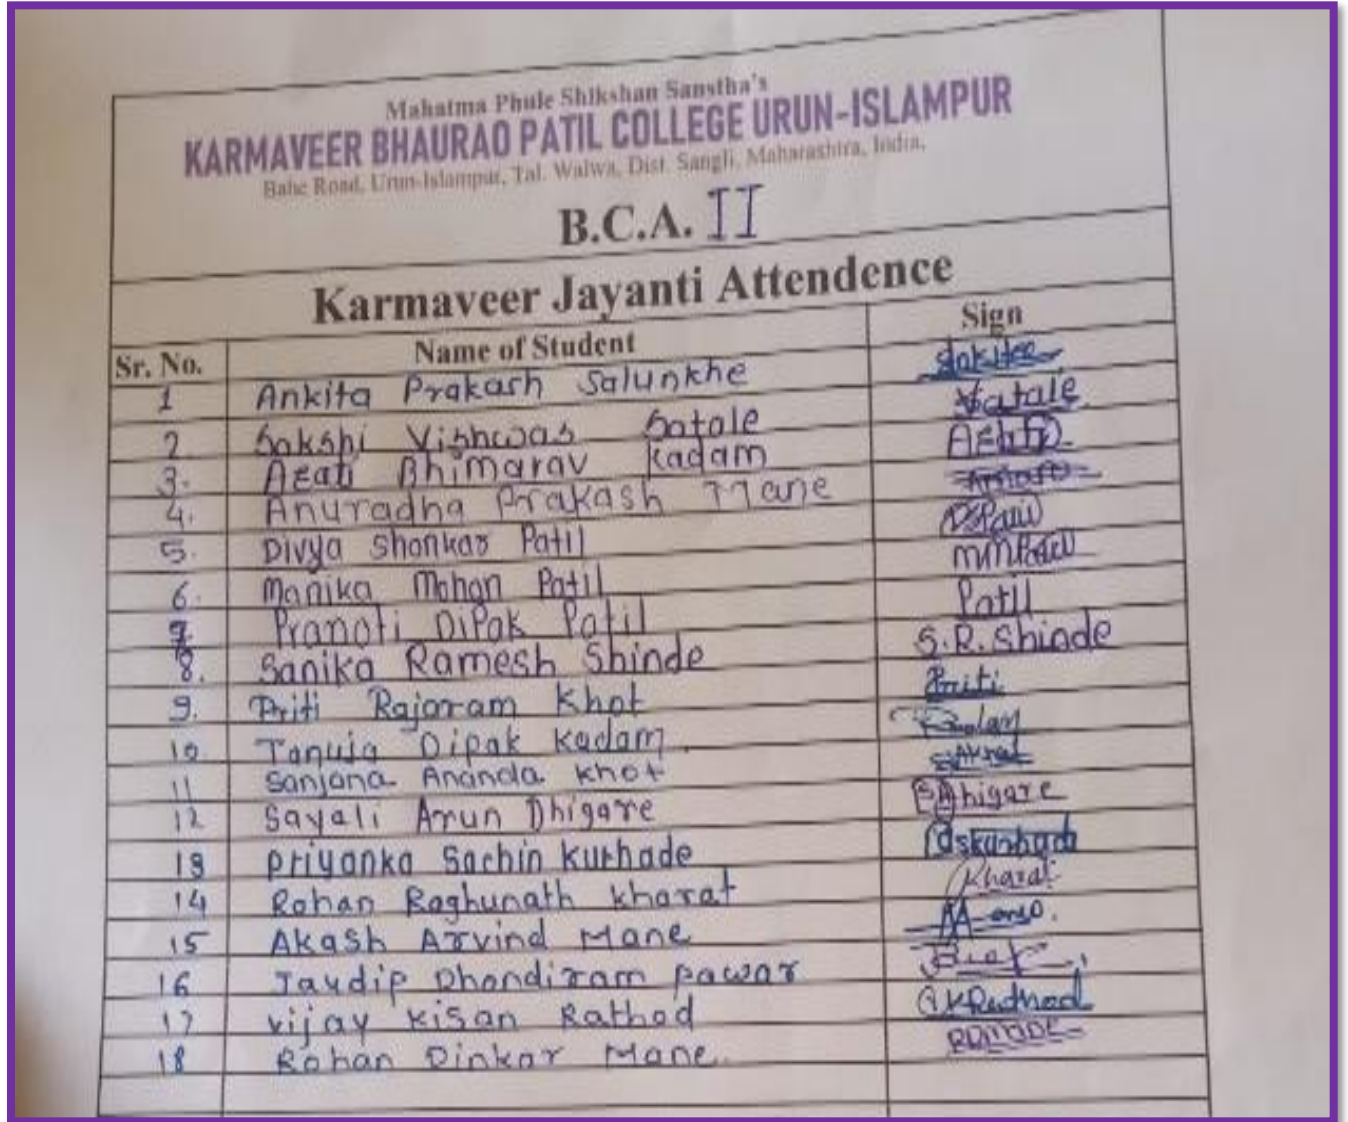 Mahatma Phule Shikshan Sanstha's
KARMAVEER BHAURAO PATIL COLLEGE URUN-ISLAMPUR
Bahe Road, Urun-Islampur, Tal. Walwa, Dist. Sangli, Maharashtra, India.
B.C.A. II
Karmaveer Jayanti Attendence
Sr. No. Name of Student Sign
1 Ankita Prakash Salunkhe
2 Sakshi Vishwas Satale Satale
3. Bhimarav Kadam
4. Anuradha Prakash Mane
5. Divya Shankar Patil
6. Manika Mohan Patil MMPatil
7. Pranoti Dipak Patil Patil
8. Sanika Ramesh Shinde S.R. Shinde
9. Priti Rajaram Khot Priti
10 Tanuja Dipak Kadam
11 Sanjana Ananda Khot
12 Sayali Arun Dhigare SADhigare
13 Priyanka Sachin Kurhade
14 Rohan Raghunath Kharat Kharat
15 Akash Arvind Mane
16 Jaydip Dhondiram Pawar
17 Vijay Kisan Rathod
18 Rohan Dinkar Mane